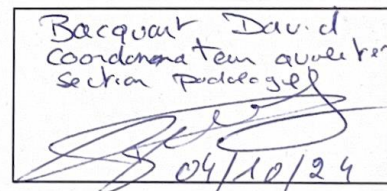 Bacquart David
coordonnateur qualité
section podologie
04/10/24